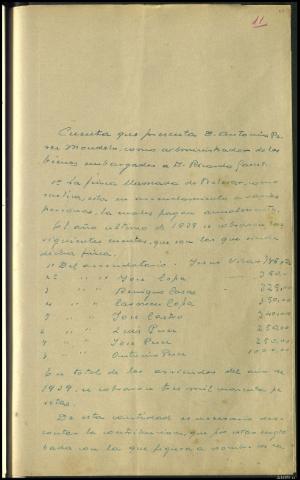 11
Cuenta que presenta D. Antonio Pe-
rez Mondelo, como administrador de los
bienes embargados a D. Ricardo
1º La finca llamada de como
rustica, esta en arrendamiento a varias
personas, la cuales pagan anualmente.
El año ultimo de 1939 se cobraron las
siguientes rentas, que son las que rinde
dicha finca.
1º Del arrendatario
2 " " Jose Copa 250.00
3 " " Benigno Casas 225.00
4 " " Carmen Copa 250.00
5 " " Jose Castro 240.00
6 " " Luis 250.00
7 " " Jose 250.00
8 " " Antonio 1000.00
En total de los arriendos del año de
1939, se cobraron tres mil pe-
setas.
De esta cantidad es necesario des-
contar la contribucion, que por estar englo-
bada con la que figura a nombre de